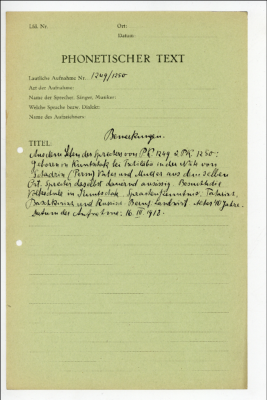 Lfd. Nr.
Ort:
Datum:
PHONETISCHER TEXT
Lautliche Aufnahme Nr. 1249/1250
Art der Aufnahme:
Name der Sprecher, Sänger, Musiker:
Welche Sprache bzw. Dialekt:
Name des Aufzeichners:
Bemerkungen.
TITEL:
Aus dem Leben des Sprechers von PK 1249 & PK 1250:
Geboren in bei in der Nähe von
(Perm) Vater und Mutter aus demselben
Ort. Sprecher daselbst dauernd ansässig. Besuchte die
Volksschule in Sprachenkenntnis: Tatarisch,
Baschkirisch und Russisch. Beruf: Landwirt. Alter: 40 Jahre.
Datum der Aufnahme: 16. 1918.